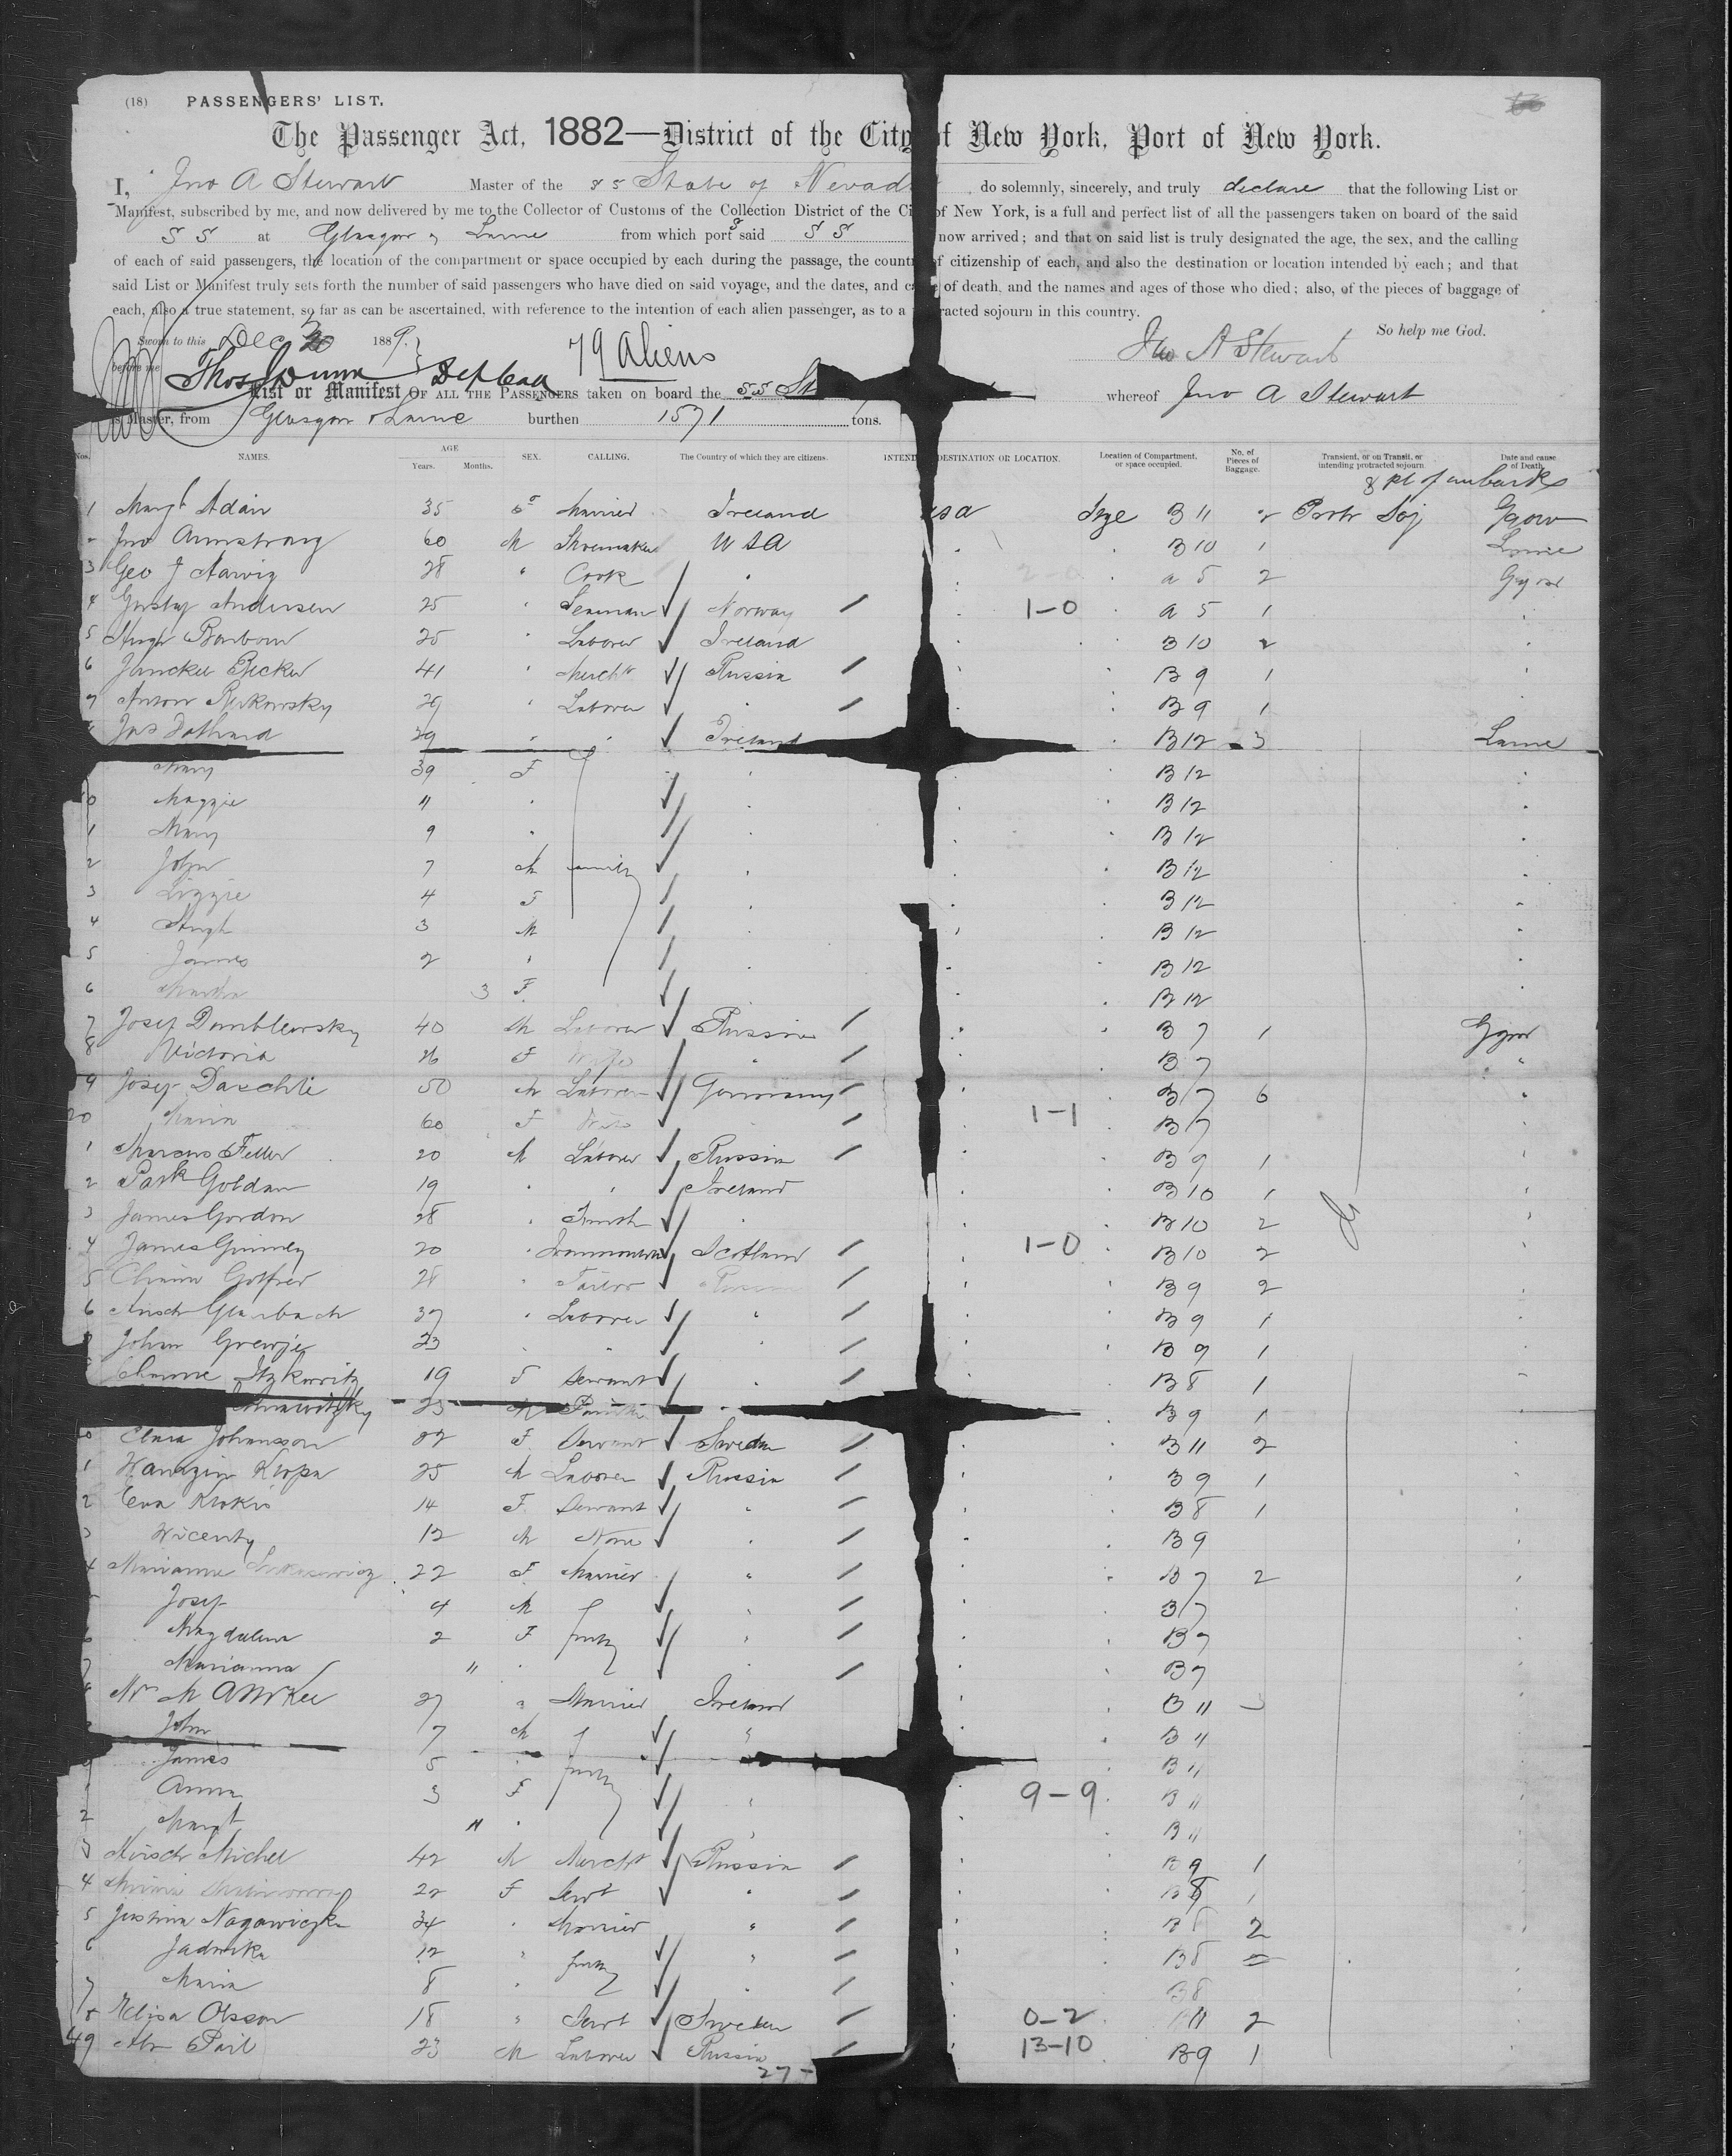 (18) PASSENGERS' LIST.
The Passenger Act, 1882—District of the City of New York, Port of New York.
I, Jno A Stewart Master of the SS State of Nevad do solemnly, sincerely, and truly declare that the following List or
Manifest, subscribed by me, and now delivered by me to the Collector of Customs of the Collection District of the Ci of New York, is a full and perfect list of all the passengers taken on board of the said
S S at Glasgow & Larne from which ports said S S now arrived; and that on said list is truly designated the age, the sex, and the calling
of each of said passengers, the location of the compartment or space occupied by each during the passage, the countr of citizenship of each, and also the destination or location intended by each; and that
said List or Manifest truly sets forth the number of said passengers who have died on said voyage, and the dates, and c of death, and the names and ages of those who died; also, of the pieces of baggage of
each, also a true statement, so far as can be ascertained, with reference to the intention of each alien passenger, as to a racted sojourn in this country.
So help me God.
Sworn to this Dec 1889. 79 Aliens Jno A Stewart
before me Thos Dunn
List or Manifest OF ALL THE PASSENGERS taken on board the SS St whereof Jno A Stewart
is Master, from Glasgow & Larne burthen 1571 tons.
Nos. NAMES. AGE Years. Months. SEX. CALLING. The Country of which they are citizens. INTEND DESTINATION OR LOCATION. Location of Compartment, or space occupied. No. of Pieces of Baggage. Transient, or on Transit, or intending protracted sojourn. Date and cause of Death.
& pt of embark
1 Margt Adair 35 F Married Ireland usa Stge B 11 2 Protr Soj Ggow
Jno Armstrong 60 M Shoemaker USA B 10 1 Larne
3 Geo J 28 " Cook " a 5 2 Ggow
4 Gustaf Andersen 25 " Seaman Norway 1-0 a 5 1
5 Hugh Barbour 25 " Laborer Ireland B 10 2
6 Becker 41 " Mercht Russia B 9 1
7 Anton 29 " Laborer " B 9 1
Jas 39 " " Ireland B 12 3 Larne
Mary 39 F B 12
10 Maggie 11 " B 12
1 Mary 9 " B 12
2 John 7 M family B 12
3 Lizzie 4 F B 12
4 Hugh 3 M B 12
5 James 2 " B 12
6 Martha 3 F B 12
7 Josef Dumblewsky 40 M Laborer Russia B 7 1 Ggow
8 Victoria 26 F Wife " B 7
9 Josef Daschli 50 M Laborer Germany B 7 6
20 Maria 60 F Wife 1-1 B 7
1 Marcus Feller 20 M Laborer Russia B 9 1
2 Patk Goldan 19 " " Ireland B 10 1
3 James Gordon 28 " Smith " B 10 2
4 James 20 " Scotland 1-0 B 10 2
5 28 " Tailor Russia B 9 2
6 37 " Laborer " B 9 1
Johan 23 B 9 1
Itzkowitz 19 F Servant B 8 1
23 M B 9 1
Clara Johansson 22 F Servant Sweden B 11 2
1 Kropa 25 M Laborer Russia B 9 1
2 Eva Krokis 14 F Servant " B 8 1
3 Wicenty 12 M None " B 9
4 Marianna 22 F Married " B 7 2
Josef 4 M B 7
Magdalena 2 F family B 7
Marianna 11 " B 7
Mrs M 27 " Married Ireland B 11
John 7 M " B 11
James 5 " family B 11
1 Anna 3 F " 9-9 B 11
2 Margt 11 " B 11
3 Hirsch Michel 42 M Mercht Russia B 9 1
4 22 F Servt " B 8 1
5 Justina 34 " Married " B 8 2
6 Jadwika 12 " family " B 8
7 Maria 8 " B 8
8 Elisa Olsson 18 " Servt Sweden 0-2 B 11 2
49 23 M Laborer Russia 13-10 B 9 1
27 -